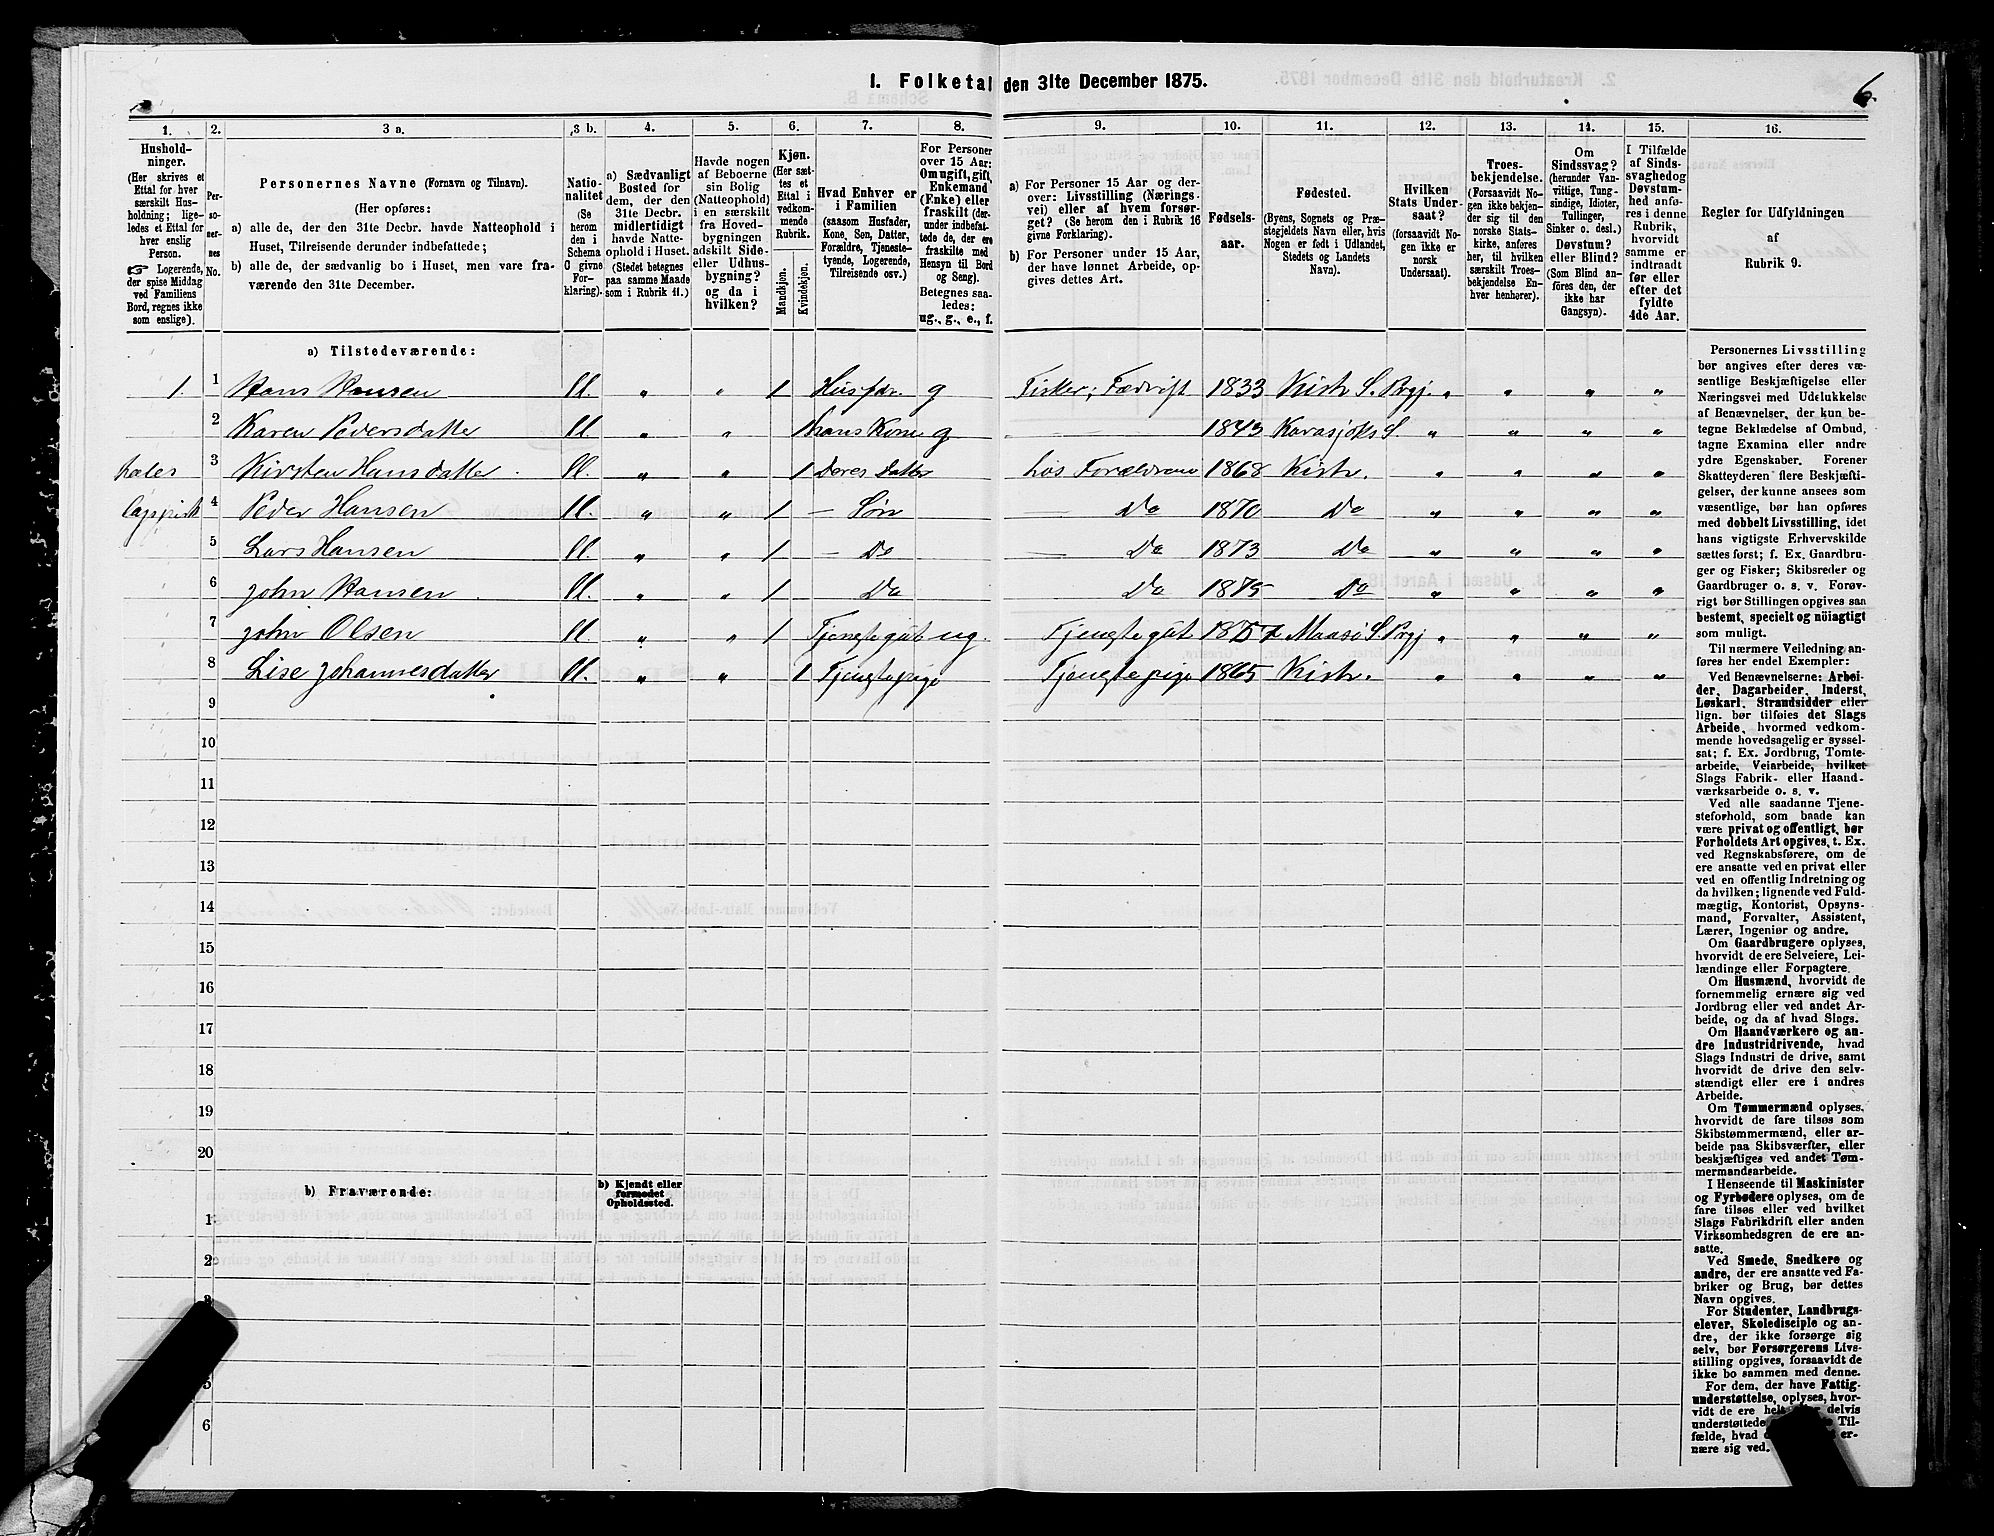 1. Folketal den 31te December 1875.
6.
1.
2.
3 a.
3 b.
4.
5.
6.
7.
8.
9.
10.
11.
12.
13.
14.
15.
16.
Hushold-
ninger.
(Her skrives et
Ettal for hver
særskilt Hus-
holdning; lige-
ledes et Ettal for
hver enslig
Person.
☞ Logerende,
der spise Middag
ved Familiens
Bord, regnes ikke
som enslige).
Per-
so-
ner-
nes
No.
Personernes Navne (Fornavn og Tilnavn).
(Her opføres:
a) alle de, der den 31te Decbr. havde Natteophold i
Huset, Tilreisende derunder indbefattede;
b) alle de, der sædvanlig bo i Huset, men vare fra-
værende den 31te December.
Natio-
nalitet
(Se
herom
den i
Schema
C givne
For-
klaring).
a) Sædvanligt
Bosted for
dem, der den
31te Decbr.
midlertidigt
havde Natte-
ophold i Huset.
(Stedet betegnes
paa samme Maade
som i Rubrik 11.)
Havde nogen
af Beboerne
sin Bolig
(Natteophold)
i en særskilt
fra Hoved-
bygningen
adskilt Side-
eller Udhus-
bygning?
og da i
hvilken?
Kjøn.
(Her sæt-
tes et
Ettal i
vedkom-
mende
Rubrik.
Mandkjøn.
Kvindekjøn.
Hvad Enhver er
i Familien
(saasom Husfader,
Kone, Søn, Datter,
Forældre, Tjeneste-
tyende, Logerende,
Tilreisende osv.)
For Personer
over 15 Aar:
Om ugift, gift,
Enkemand
(Enke) eller
fraskilt (der-
under indbefat-
tede de, der ere
fraskilte med
Hensyn til Bord
og Seng).
Betegnes saa-
ledes:
ug., g., e., f.
a) For Personer 15 Aar og der-
over: Livsstilling (Nærings-
vei) eller af hvem forsør-
get? (Se herom den i Rubrik 16
givne Forklaring).
b) For Personer under 15 Aar,
der have lønnet Arbeide, op-
gives dettes Art.
Fødsels-
aar.
Fødested.
(Byens, Sognets og Præ-
stegjeldets Navn eller, hvis
Nogen er født i Udlandet,
Stedets og Landets
Navn).
Hvilken
Stats Under-
saat?
(forsaavidt No-
gen ikke er
norsk
Undersaat).
Troes-
bekjendelse.
(Forsaavidt No-
gen ikke bekjen-
der sig til den
norske Stats-
kirke, anføres
her, til hvilken
særskilt Troes-
bekjendelse En-
hver henhører).
Om
Sindssvag?
(herunder Van-
vittige, Tung-
sindige, Idioter,
Tullinger,
Sinker o. desl.)
Døvstum?
eller Blind?
(Som Blind an-
føres den, der
ikke har
Gangsyn).
I Tilfælde
af Sinds-
svaghed og
Døvstum-
hed anfø-
res i denne
Rubrik,
hvorvidt
samme er
indtraadt
før eller
efter det
fyldte
4de Aar.
Regler for Udfyldningen
af
Rubrik 9.
a) Tilstedeværende:
1. 1 Hans Hansen " " 1 Husfdr. g Fisker; Fædrift 1833 Kistr S. Prgj. " " " "
2 Karen Pedersdatter " " 1 hans Kone g 1843 Karasjoks S. " " " "
3 Kirsten Hansdatter " " 1 Deres Datter hos Forældrene 1868 Kistr. " " " "
4 Peder Hansen " " 1 – Søn — Do 1870 Do " " " "
5 Lars Hansen " " 1 – Do — Do 1873 Do " " " "
6 John Hansen " " 1 Do Do 1875 Do " " " "
7 John Olsen " " 1 Tjenstegut ug. Tjenstegut Maasø S. Prgj " " " "
8 Lise Johannesdatter " " 1 Tjenstepige Tjenstepige 1865 Kistr. " " " "
9
10
11
12
13
14
15
16
17
18
19
20
b) Fraværende:
b) Kjendt eller
formodet
Opholdssted.
1
2
3
5
6
Personernes Livsstilling
bør angives efter deres væ-
sentlige Beskjæftigelse eller
Næringsvei med Udelukkelse
af Benævnelser, der kun be-
tegne Beklædelse af Ombud,
tagne Examina eller andre
ydre Egenskaber. Forener
Skatteyderen flere Beskjæfti-
gelser, der kunne ansees som
væsentlige, bør han opføres
med dobbelt Livsstilling, idet
hans vigtigste Erhvervskilde
sættes først; f. Ex. Gaardbru-
ger og Fisker; Skibsreder og
Gaardbruger o. s. v. Forøv-
rigt bør Stillingen opgives saa
bestemt, specielt og nöiagtigt
som muligt.
Til nærmere Veiledning an-
føres her endel Exempler:
Ved Benævnelserne: Arbei-
der, Dagarbeider, Inderst,
Løskarl, Strandsidder eller
lign. bør tilføies det Slags
Arbeide, hvormed vedkom-
mende hovedsagelig er syssel-
sat; f. Ex. Jordbrug, Tomte-
arbeide, Veiarbeide, hvilket
Slags Fabrik- eller Haand-
værksarbeide o. s. v.
Ved alle saadanne Tjene-
steforhold, som baade kan
være privat og offentligt, bør
Forholdets Art opgives, t. Ex.
ved Regnskabsførere, om de
ere ansatte ved en privat eller
ved en offentlig Indretning og
da hvilken; lignende ved Fuld-
mægtig, Kontorist, Opsyns-
mand, Forvalter, Assistent,
Lærer, Ingeniør og andre.
Om Gaardbrugere oplyses,
hvorvidt de ere Selveiere, Lei-
lændinge eller Forpagtere.
Om Husmænd, hvorvidt de
fornemmelig ernære sig ved
Jordbrug eller ved andet Ar-
beide, og da af hvad Slags.
Om Haandværkere og an-
dre Industridrivende, hvad
Slags Industri de drive, samt
hvorvidt de drive den selv-
stændigt eller ere i andres
Arbeide.
Om Tømmermænd oplyses,
hvorvidt de fare tilsøs som
Skibstømmermænd, eller ar-
beide paa Skibsværfter, eller
beskjæftiges ved andet Tøm-
mermandsarbeide.
I Henseende til Maskinister
og Fyrbødere oplyses, om de
fare tilsøs eller ved hvilket
Slags Fabrikdrift eller anden
Virksomhedsgren de ere an-
satte.
Ved Smede, Snedkere og
andre, der ere ansatte ved Fa-
briker og Brug, bør dettes
Navn opgives.
For Studenter, Landbrugs-
elever, Skoledisciple og an-
dre, der ikke forsørge sig
selv, bør Forsørgerens Livs-
stilling opgives, forsaavidt de
ikke bo sammen med denne.
For dem, der have Fattig-
understøttelse, oplyses, hvor-
vidt de ere delvis
understøttede Til-
fælde, hvad er-
nære sig ved.